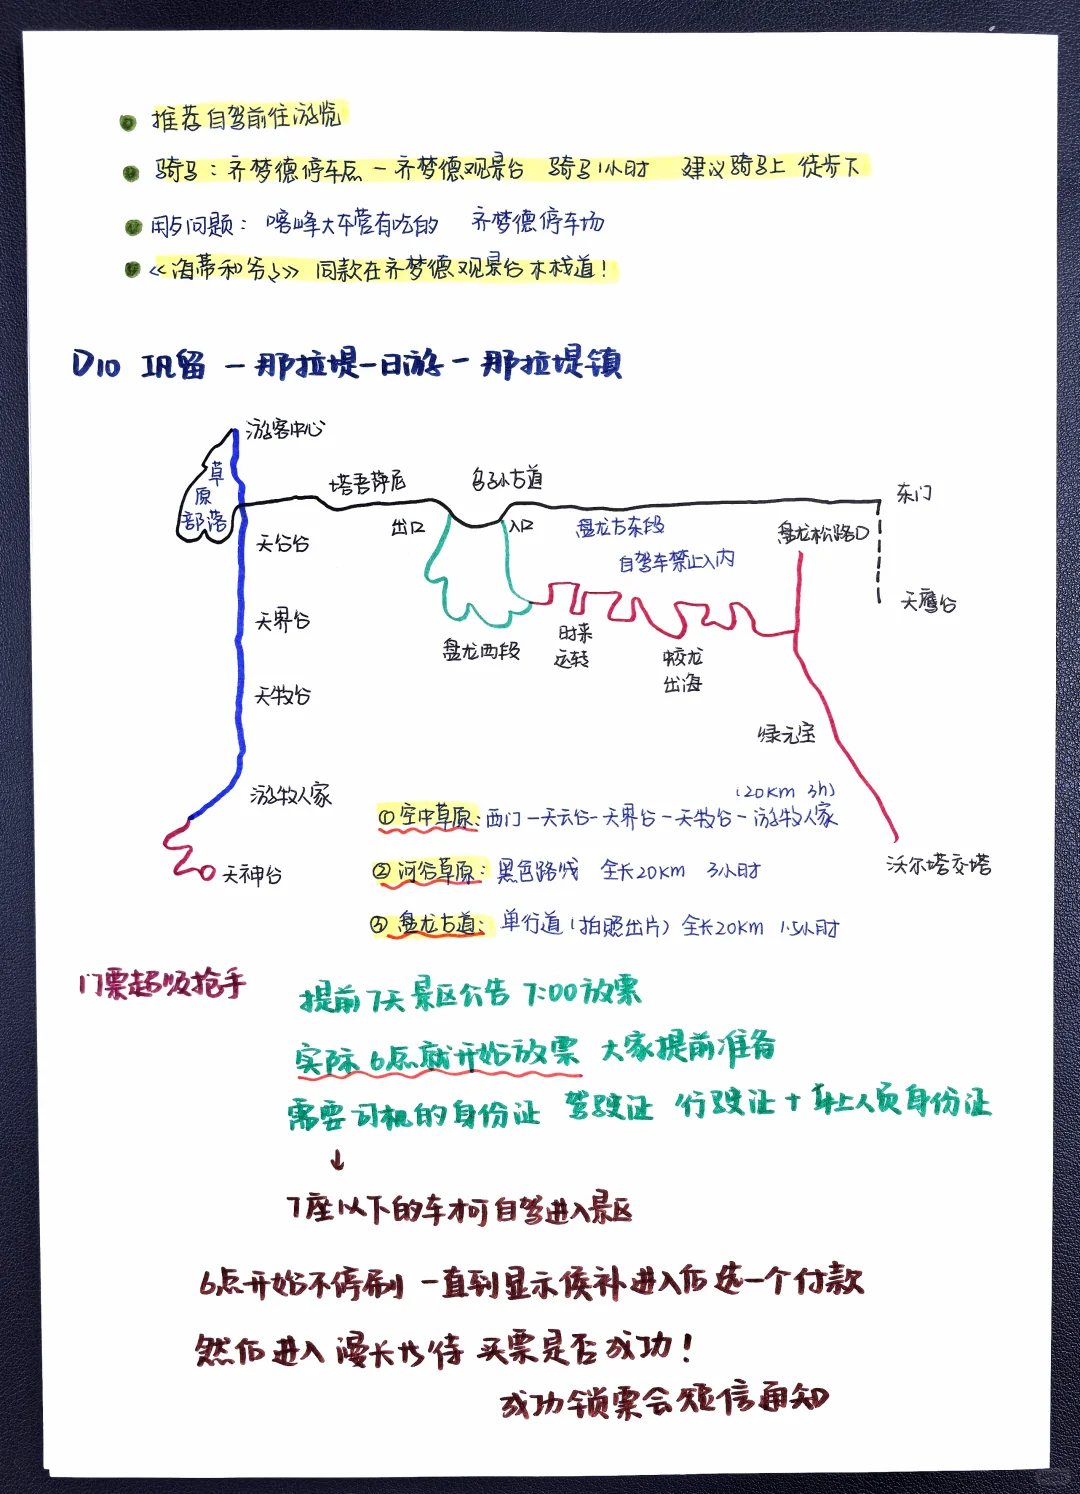 推荐自驾前往游览
骑马：齐梦德停车点－齐梦德观景台 骑马1小时 建议骑马上 徒步下
用餐问题：喀峰大本营有吃的 齐梦德停车场
《海蒂和爷爷》同款在齐梦德观景台木栈道！
D10 巩留－那拉堤一日游－那拉堤镇
游客中心
草原部落
塔吾萨尼
乌孙古道
东门
出口
入口
盘龙古东段
盘龙松路口
天谷台
自驾车禁止入内
天鹰台
天界台
盘龙西段
时来运转
蛟龙出海
天牧台
绿元宝
游牧人家
(20KM 3h)
①空中草原：西门－天云台－天界台－天牧台－游牧人家
天神台
②河谷草原：黑色路线 全长20KM 3小时
沃尔塔交塔
③盘龙古道：单行道（拍照出片）全长20KM 1.5小时
门票超级抢手
提前7天景区公告 7:00放票
实际6点就开始放票 大家提前准备
需要司机的身份证 驾驶证 行驶证＋车上人员身份证
↓
7座以下的车才可自驾进入景区
6点开始不停刷 一直到显示候补进入后选一个付款
然后进入漫长等待 买票是否成功！
成功锁票会短信通知